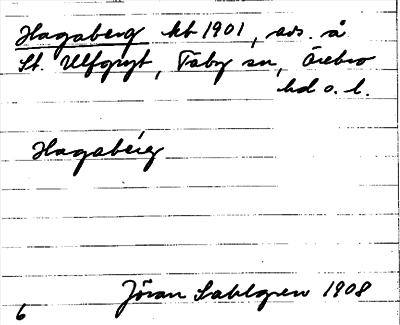 Hagaberg kb 1901, avs. å
St. Ulfgryt, Täby sn, Örebro
hd o. l.
Hagabérg
Jöran Sahlgren 1908
6